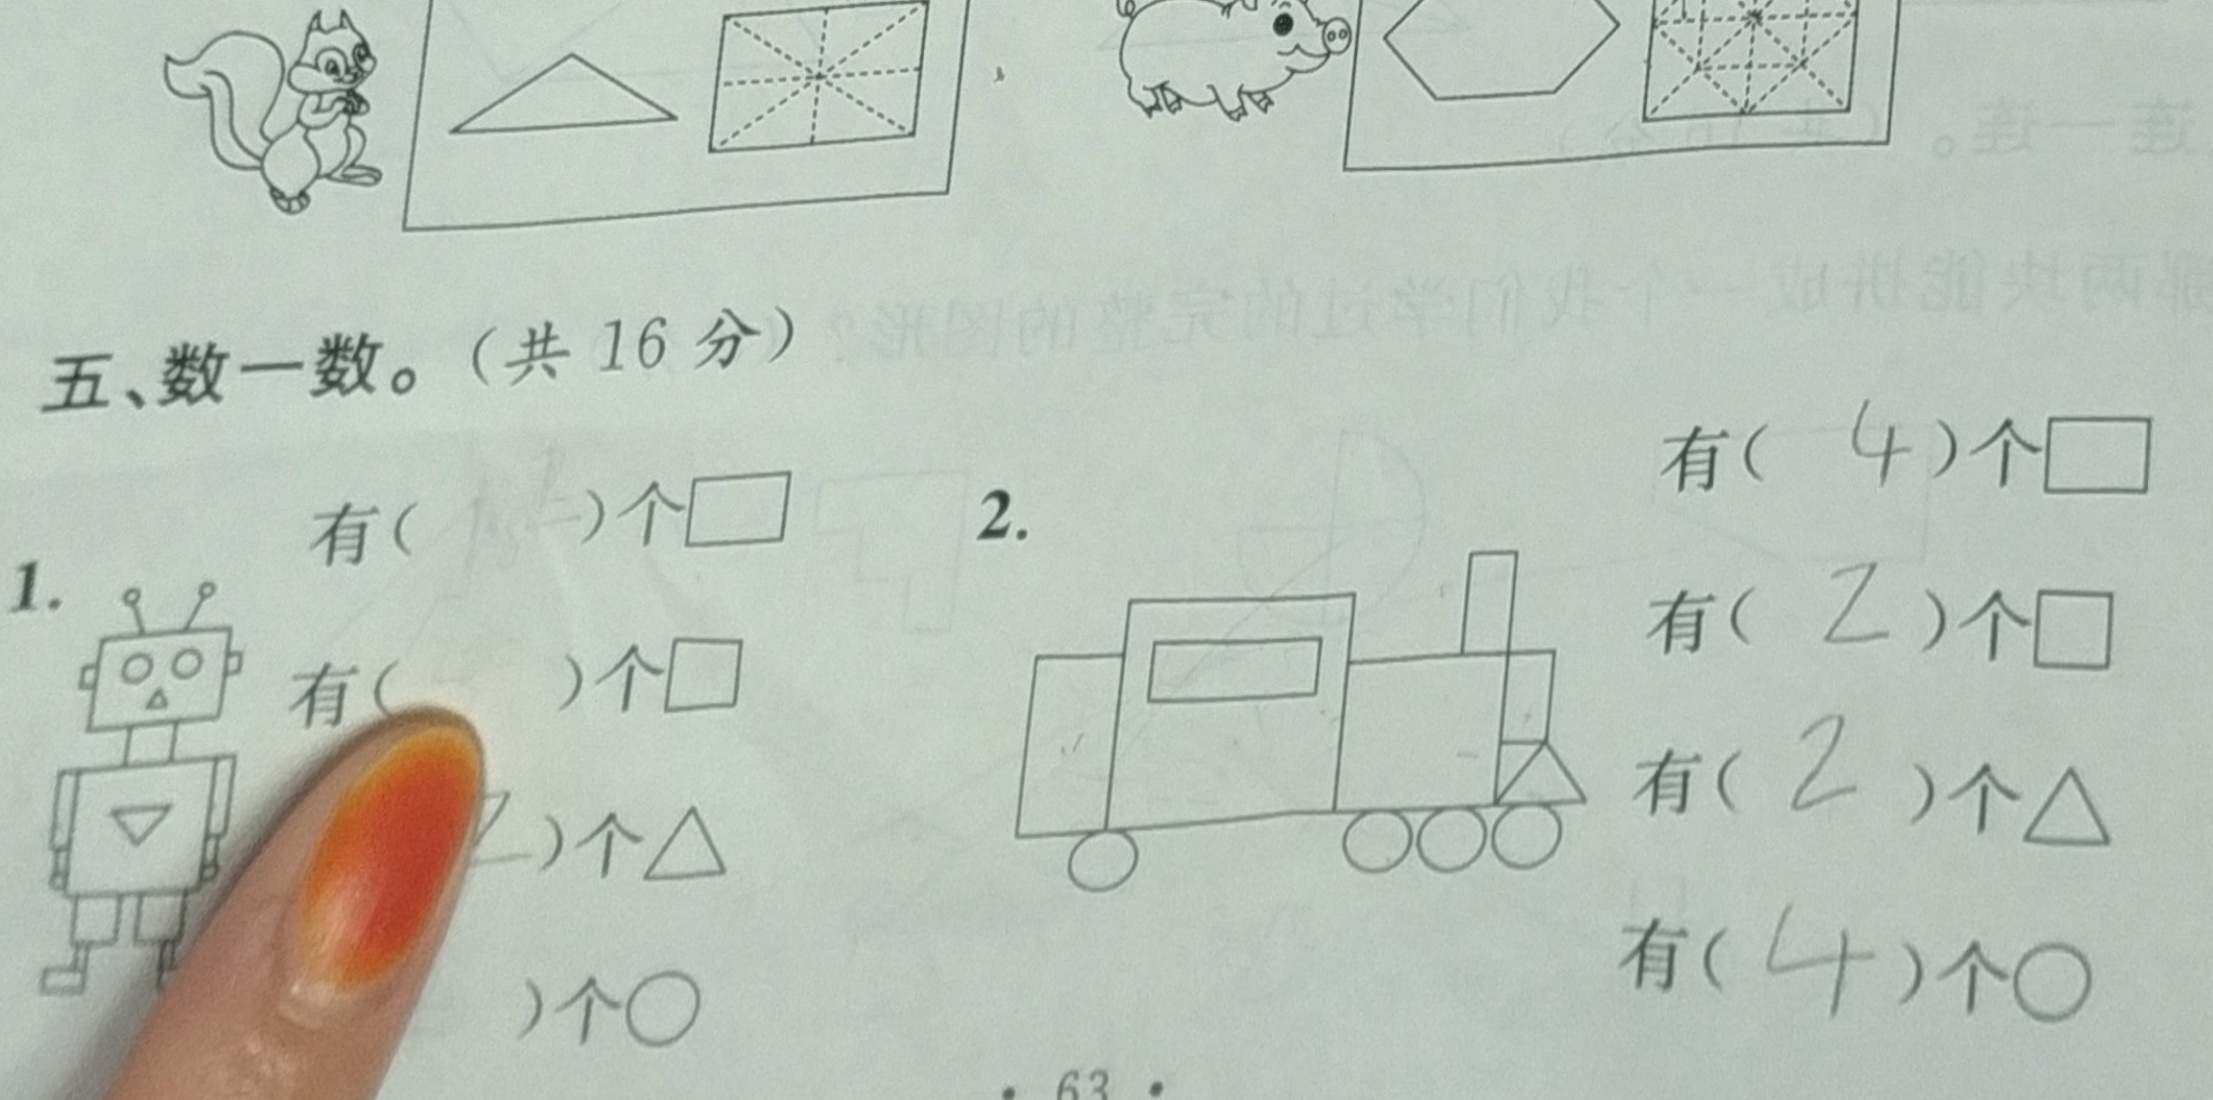 五、数一数。(共 16 分)
1.
有( )个□
有( )个□
2)个△
)个○
2.
有( 4 )个□
有( 2 )个□
有( 2 )个△
有( 4 )个○
· 63 ·